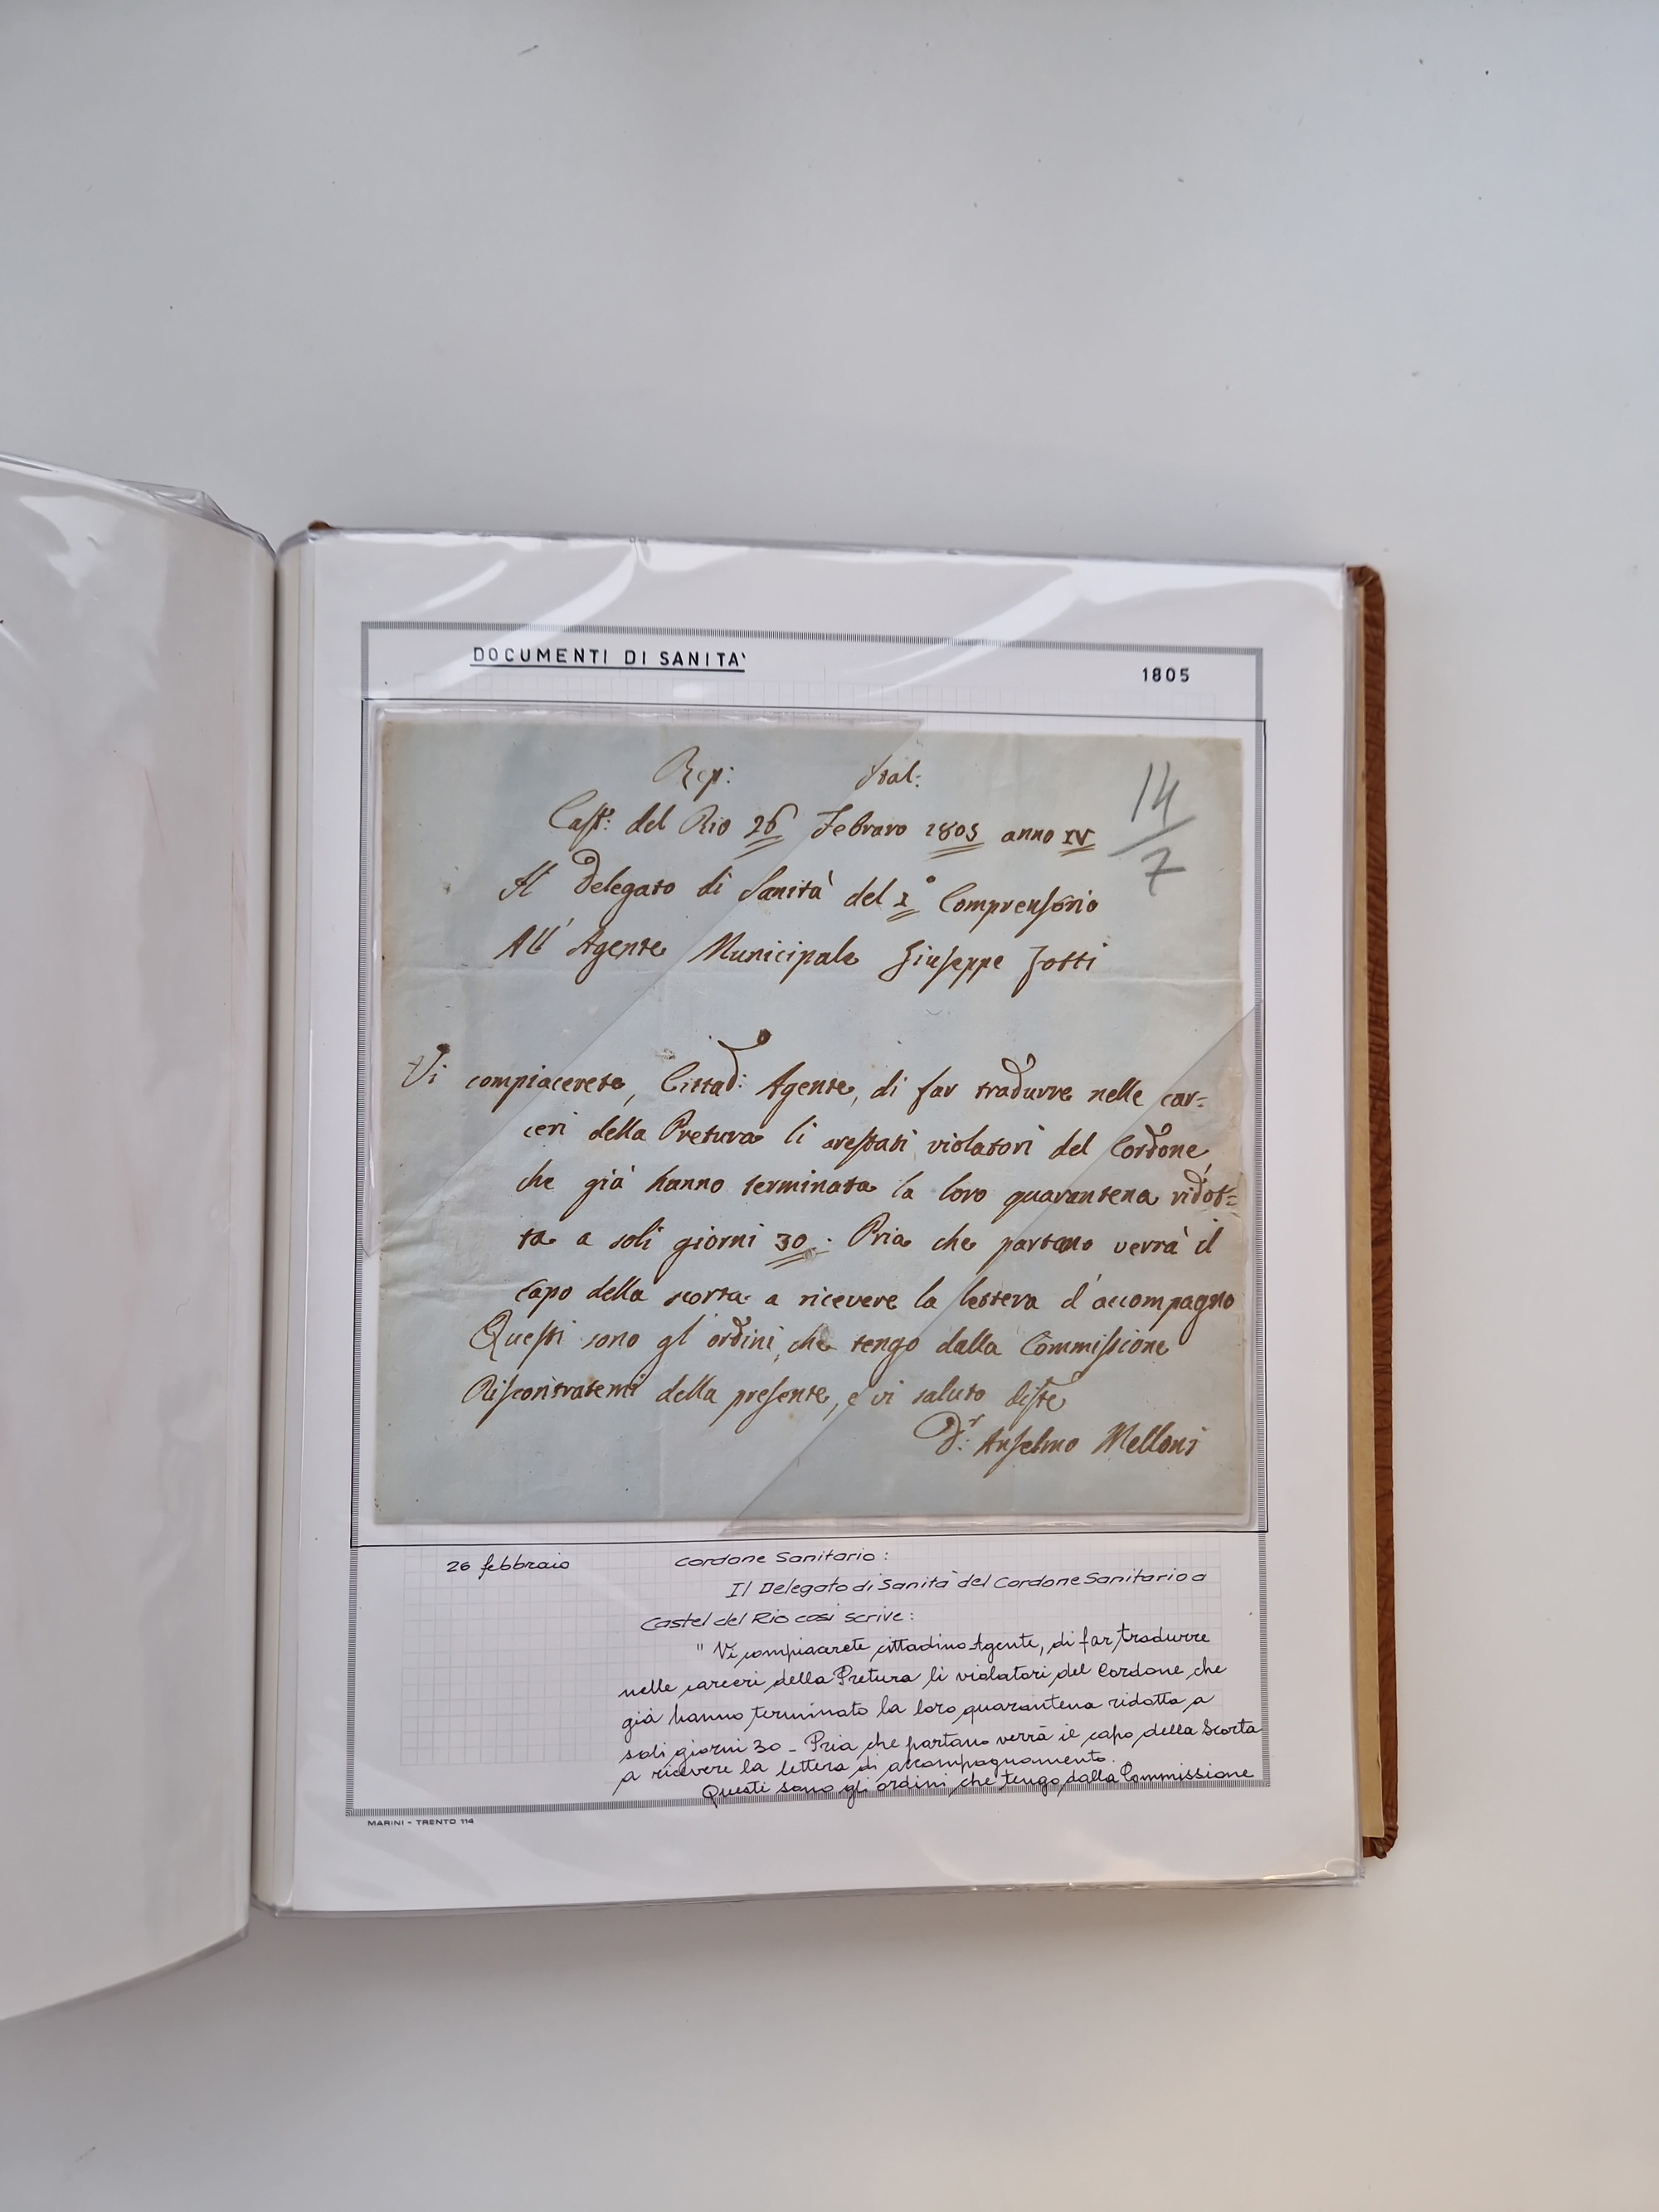 DOCUMENTI DI SANITA'
1805
Rep: Ital:
Cast: del Rio 26 Febraro 1805 anno IV
14/7
Il Delegato di Sanità del 1° Comprensorio
All' Agente Municipale Giuseppe Zotti
Vi compiacerete, Cittad: Agente, di far tradurre nelle car=
ceri della Pretura li arestati violatori del Cordone,
che già hanno terminata la loro quarantena ridot=
ta a soli giorni 30. Pria che partano verrà il
capo della scorta a ricevere la lettera d'accompagno
Questi sono gl'ordini, che tengo dalla Commissione
Riscontratemi della presente, e vi saluto
Dr: Anselmo Melloni
26 febbraio
Cordone Sanitario:
Il Delegato di Sanità del Cordone Sanitario a
Castel del Rio così scrive:
" Vi compiacerete cittadino Agente, di far tradurre
nelle carceri della Pretura li violatori del Cordone che
già hanno terminato la loro quarantena ridotta a
soli giorni 30 - Pria che partano verrà il capo della Scorta
a ricevere la lettera di accompagnamento.
Questi sono gli ordini che tengo dalla Commissione
MARINI - TRENTO 114